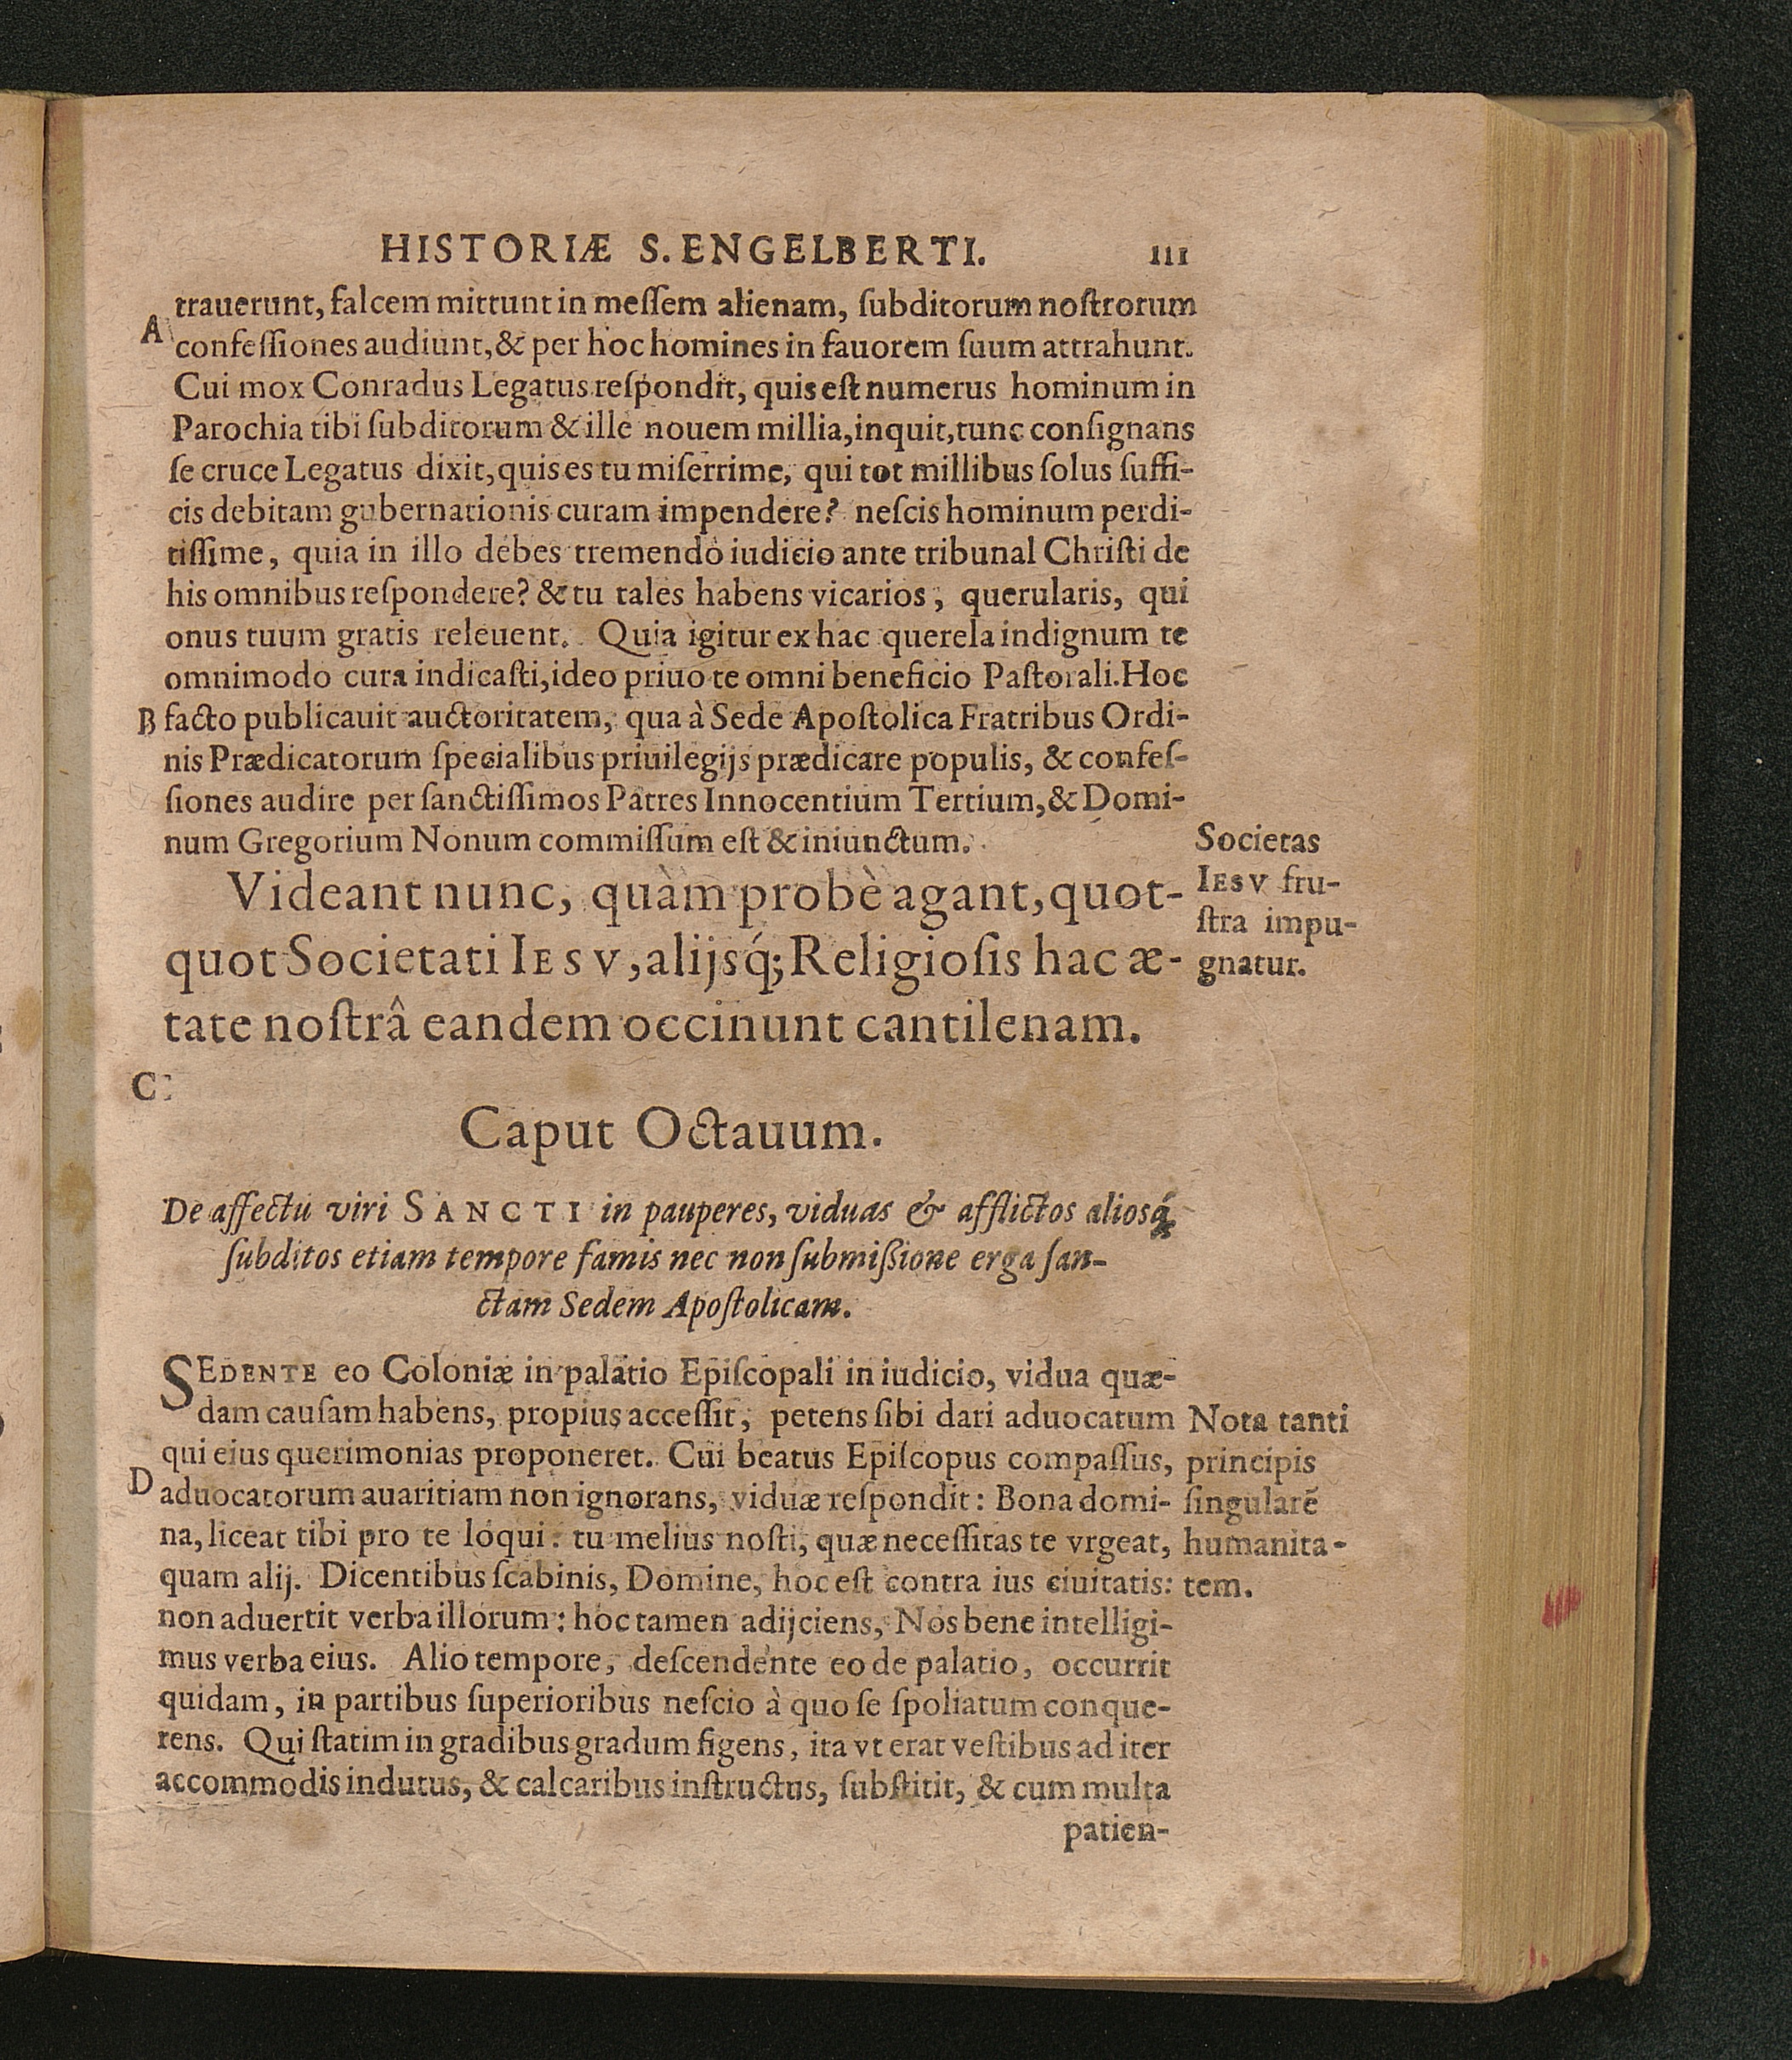 HISTORIÆ S. ENGELBERTI. 111
trauerunt, falcem mittunt in meſſem alienam, ſubditorum noſtrorum
A
confeſſiones audiunt, & per hoc homines in fauorem ſuum attrahunt.
Cui mox Conradus Legatus reſpondit, quis eſt numerus hominum in
Parochia tibi ſubditorum & ille nouem millia, inquit, tunc conſignans
ſe cruce Legatus dixit, quis es tu miſerrime, qui tot millibus ſolus ſuffi-
cis debitam gubernationis curam impendere? neſcis hominum perdi-
tiſſime, quia in illo debes tremendo iudicio ante tribunal Chriſti de
his omnibus reſpondere? & tu tales habens vicarios, querularis, qui
onus tuum gratis releuent. Quia igitur ex hac querela indignum te
omnimodo cura indicaſti, ideo priuo te omni beneficio Paſtorali. Hoc
B facto publicauit auctoritatem, qua à Sede Apoſtolica Fratribus Ordi-
nis Prædicatorum ſpecialibus priuilegijs prædicare populis, & confeſ-
ſiones audire per ſanctiſſimos Patres Innocentium Tertium, & Domi-
num Gregorium Nonum commiſſum eſt & iniunctum.
Videant nunc, quàm probè agant, quot-
quot Societati IESV, alijsq́; Religioſis hac æ-
tate noſtrâ eandem occinunt cantilenam.
Societas
IESV fru-
ſtra impu-
gnatur.
C
Caput Octauum.
De affectu viri SANCTI in pauperes, viduas & afflictos aliosq́;
ſubditos etiam tempore famis nec non ſubmiſſione erga ſan-
ctam Sedem Apoſtolicam.
SEDENTE eo Coloniæ in palatio Epiſcopali in iudicio, vidua quæ-
dam cauſam habens, propius acceſſit, petens ſibi dari aduocatum
qui eius querimonias proponeret. Cui beatus Epiſcopus compaſſus,
D aduocatorum auaritiam non ignorans, viduæ reſpondit: Bona domi-
na, liceat tibi pro te loqui: tu melius noſti, quæ neceſſitas te vrgeat,
quam alij. Dicentibus ſcabinis, Domine, hoc eſt contra ius ciuitatis:
non aduertit verba illorum: hoc tamen adijciens, Nos bene intelligi-
mus verba eius. Alio tempore, deſcendente eo de palatio, occurrit
quidam, in partibus ſuperioribus neſcio à quo ſe ſpoliatum conque-
rens. Qui ſtatim in gradibus gradum figens, ita vt erat veſtibus ad iter
accommodis indutus, & calcaribus inſtructus, ſubſtitit, & cum multa
patien-
Nota tanti
principis
ſingularē
humanita-
tem.